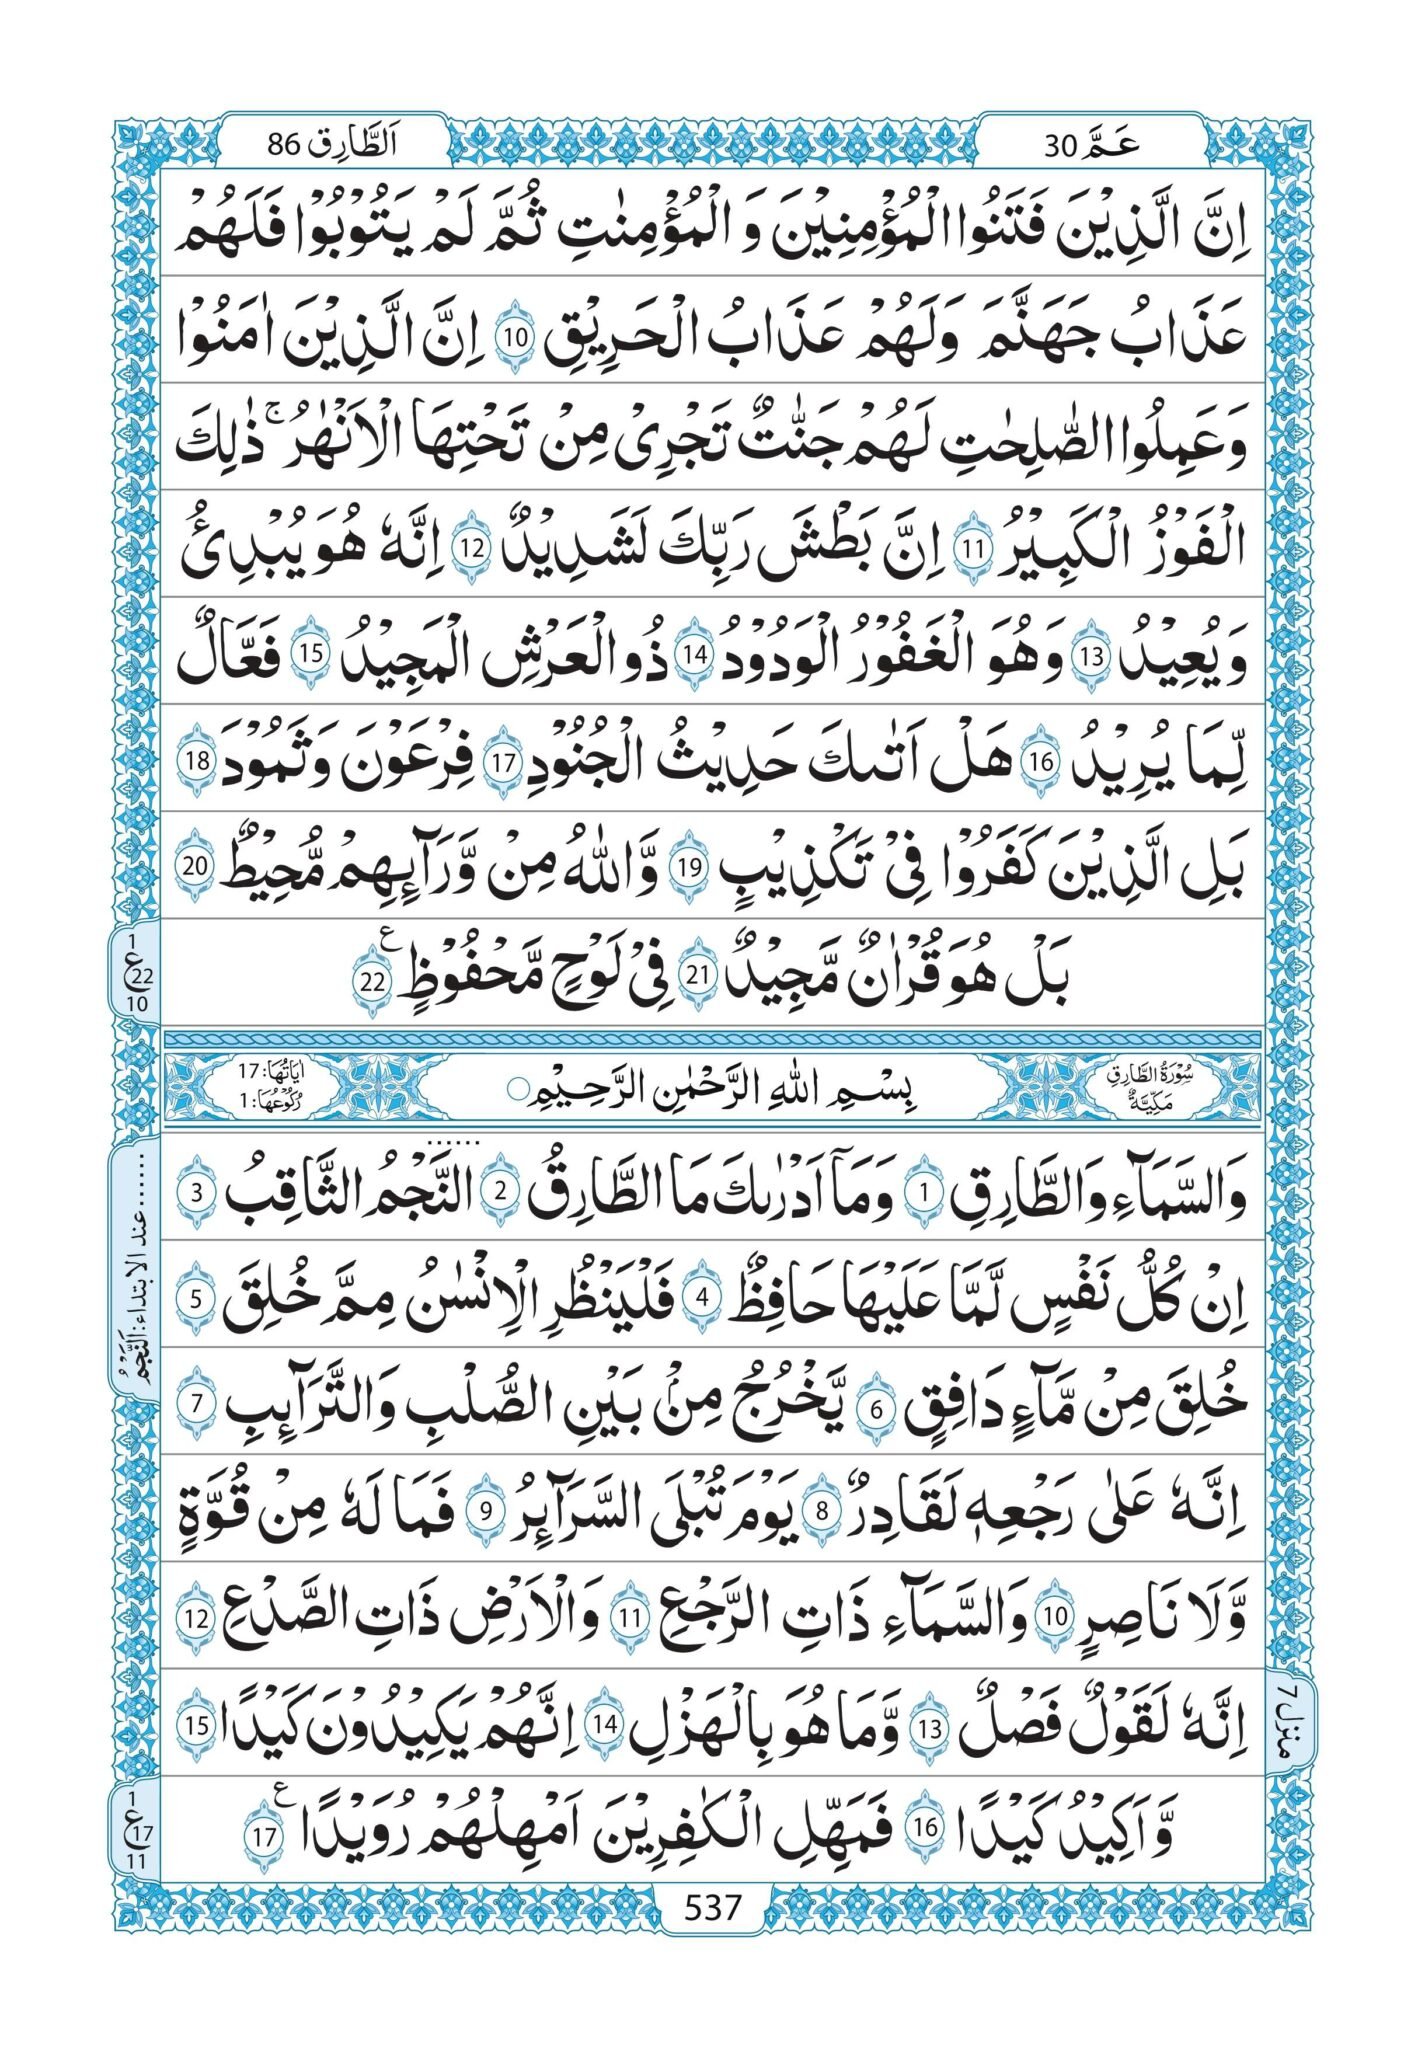 عَمَّ 30
اَلطَّارِق 86
اِنَّ الَّذِيْنَ فَتَنُوا الْمُؤْمِنِيْنَ وَ الْمُؤْمِنٰتِ ثُمَّ لَمْ يَتُوْبُوْا فَلَهُمْ
عَذَابُ جَهَنَّمَ وَلَهُمْ عَذَابُ الْحَرِيْقِ 10 اِنَّ الَّذِيْنَ اٰمَنُوْا
وَعَمِلُوا الصّٰلِحٰتِ لَهُمْ جَنّٰتٌ تَجْرِىْ مِنْ تَحْتِهَا الْاَنْهٰرُ ۚ ذٰلِكَ
الْفَوْزُ الْكَبِيْرُ 11 اِنَّ بَطْشَ رَبِّكَ لَشَدِيْدٌ 12 اِنَّهٗ هُوَ يُبْدِئُ
وَيُعِيْدُ 13 وَهُوَ الْغَفُوْرُ الْوَدُوْدُ 14 ذُو الْعَرْشِ الْمَجِيْدُ 15 فَعَّالٌ
لِّمَا يُرِيْدُ 16 هَلْ اَتٰىكَ حَدِيْثُ الْجُنُوْدِ 17 فِرْعَوْنَ وَثَمُوْدَ 18
بَلِ الَّذِيْنَ كَفَرُوْا فِىْ تَكْذِيْبٍ 19 وَّاللّٰهُ مِنْ وَّرَآئِهِمْ مُّحِيْطٌ 20
بَلْ هُوَ قُرْاٰنٌ مَّجِيْدٌ 21 فِىْ لَوْحٍ مَّحْفُوْظٍ 22 ع
1
ع 22
10
سُوْرَةُ الطَّارِقِ
مَكِّيَّةٌ
بِسْمِ اللّٰهِ الرَّحْمٰنِ الرَّحِيْمِ
اٰيَاتُهَا: 17
رُكُوْعُهَا: 1
وَالسَّمَآءِ وَالطَّارِقِ 1 وَمَآ اَدْرٰىكَ مَا الطَّارِقُ 2 النَّجْمُ الثَّاقِبُ 3
اِنْ كُلُّ نَفْسٍ لَّمَّا عَلَيْهَا حَافِظٌ 4 فَلْيَنْظُرِ الْاِنْسٰنُ مِمَّ خُلِقَ 5
خُلِقَ مِنْ مَّآءٍ دَافِقٍ 6 يَّخْرُجُ مِنْۢ بَيْنِ الصُّلْبِ وَالتَّرَآئِبِ 7
اِنَّهٗ عَلٰى رَجْعِهٖ لَقَادِرٌ 8 يَوْمَ تُبْلَى السَّرَآئِرُ 9 فَمَا لَهٗ مِنْ قُوَّةٍ
وَّلَا نَاصِرٍ 10 وَالسَّمَآءِ ذَاتِ الرَّجْعِ 11 وَالْاَرْضِ ذَاتِ الصَّدْعِ 12
اِنَّهٗ لَقَوْلٌ فَصْلٌ 13 وَّمَا هُوَ بِالْهَزْلِ 14 اِنَّهُمْ يَكِيْدُوْنَ كَيْدًا 15
وَّاَكِيْدُ كَيْدًا 16 فَمَهِّلِ الْكٰفِرِيْنَ اَمْهِلْهُمْ رُوَيْدًا 17 ع
......عند الابتداء: اَلنَّجْمُ
منزل 7
1
ع 17
11
537